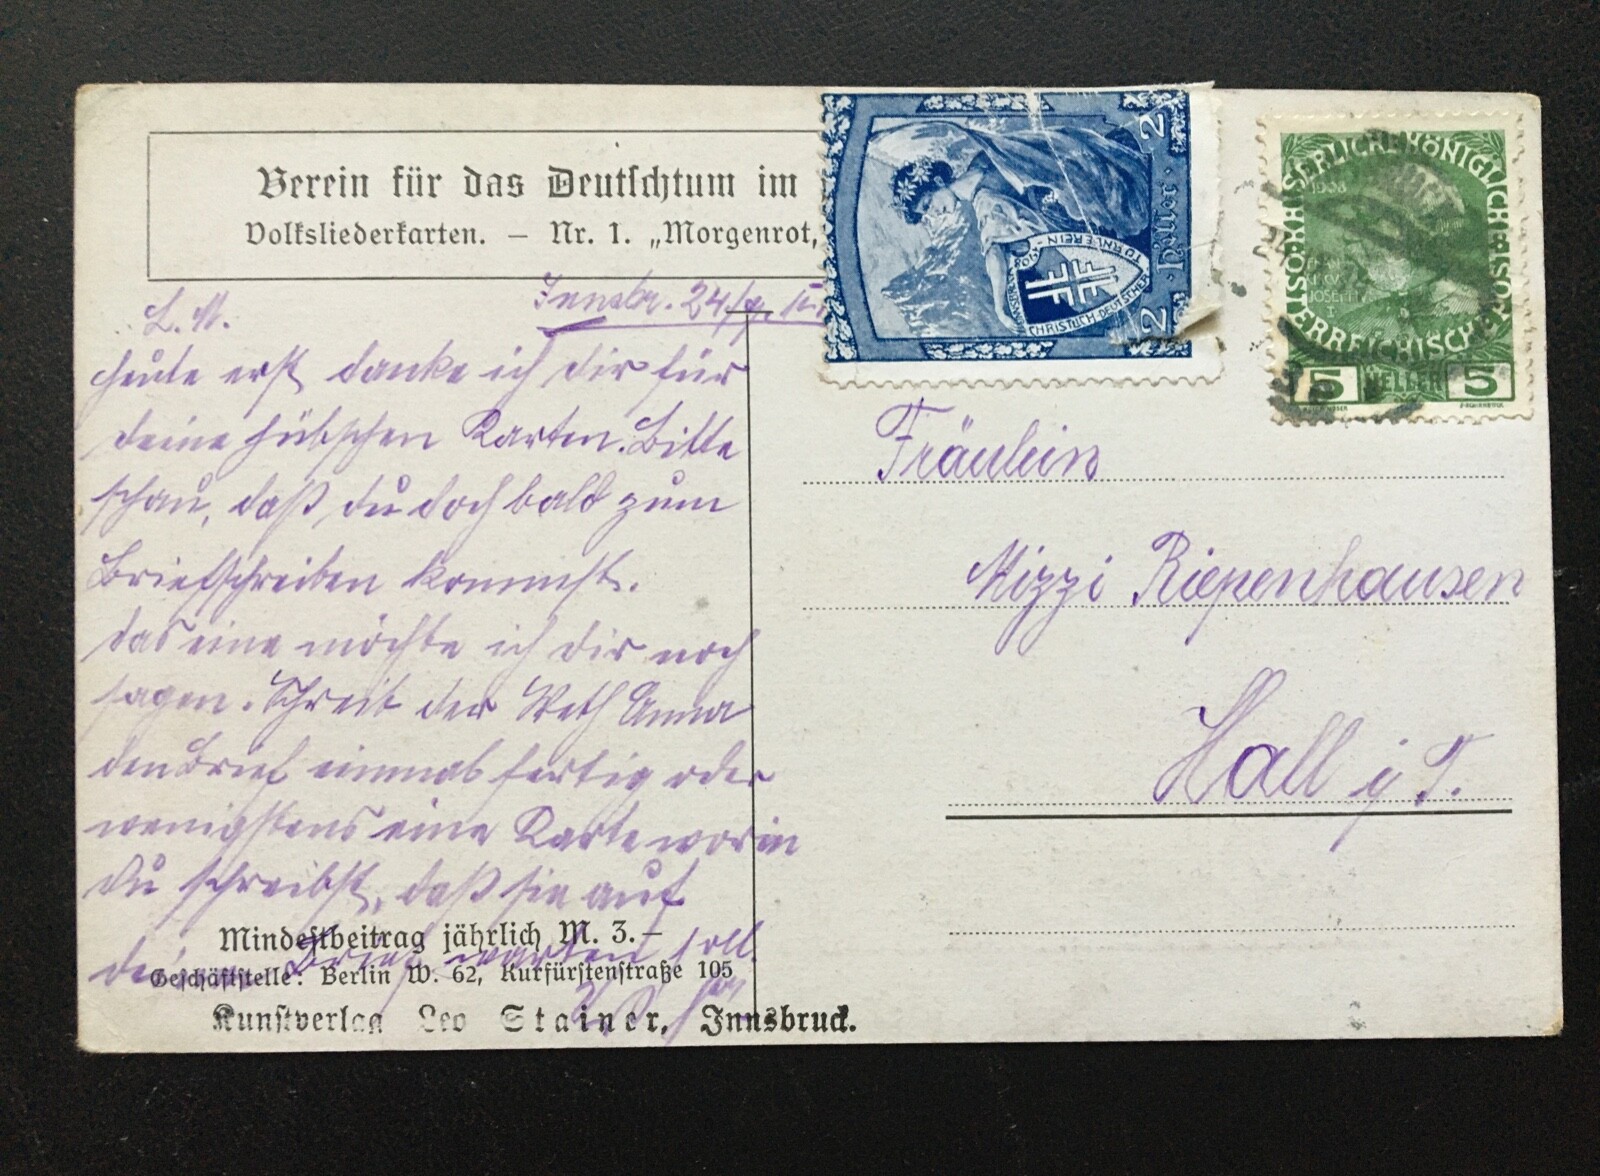 Verein für das Deutschtum im
Volksliederkarten. – Nr. 1. „Morgenrot,
Innsbr. 24/
L. M.
Heute erst danke ich dir für
deine hübschen Karten. Bitte
schau, daß du doch bald zum
Briefschreiben kommst.
das eine möchte ich dir noch
sagen. Schreib der Anna
den Brief einmal fertig oder
wenigstens eine Karte worin
du schreibst, daß sie auf
Brief warten soll.
Mindestbeitrag jährlich M. 3.–
Geschäftstelle: Berlin W. 62, Kurfürstenstraße 105
Kunstverlag Leo Stainer, Innsbruck.
2 Heller 2
CHRISTLICH-DEUTSCHER TURNVEREIN
KAISERLICHE KÖNIGLICHE
ÖSTERREICHISCHE POST
1908
5 HELLER 5
Fräulein
Mizzi Riepenhausen
Hall i. T.